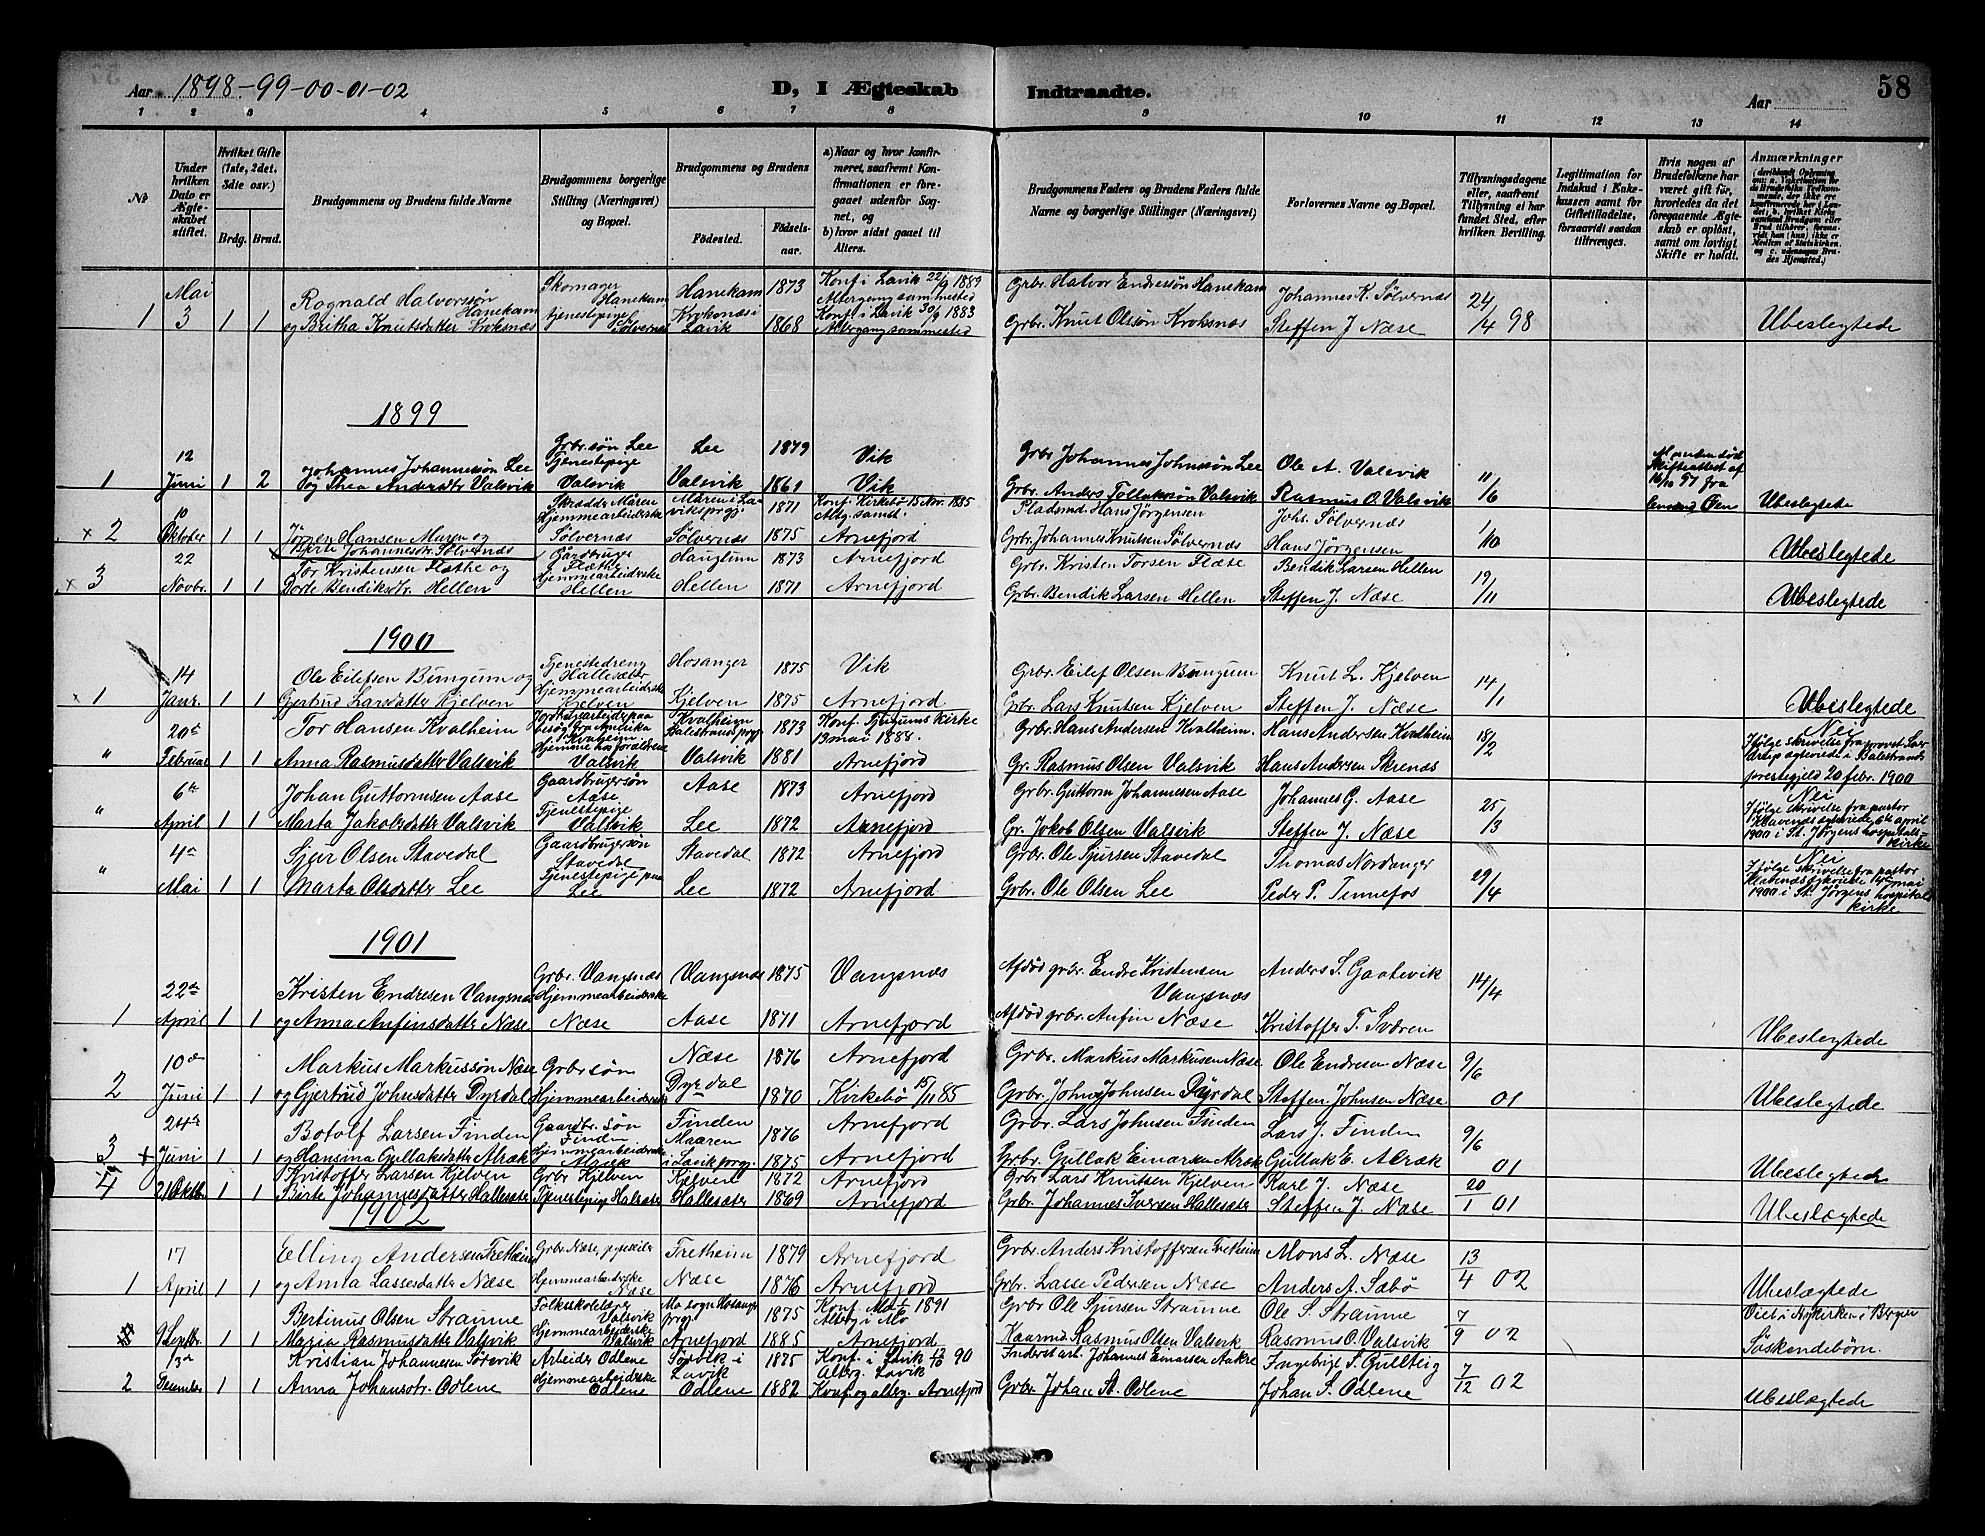 Aar 1898-99-00-01-02
D, I Ægteskab Indtraadte.
Aar
58
1 2 3 4 5 6 7 8 9 10 11 12 13 14
No
Under hvilken Dato er Ægteskabet stiftet.
Hvilket Gifte (1ste, 2det, 3die osv.)
Brdg. Brud.
Brudgommens og Brudens fulde Navne
Brudgommens borgerlige Stilling (Næringsvei) og Bopæl.
Brudgommens og Brudens
Födested. Födselsaar.
a) Naar og hvor konfirmeret, saafremt Konfirmationen er foregaaet udenfor Sognet, og
b) hvor sidst gaaet til Alters.
Brudgommens Faders og Brudens Faders fulde Navne og borgerlige Stillinger (Næringsvei)
Forlovernes Navne og Bopæl.
Tillysningsdagene eller, saafremt Tillysning ei har fundet Sted, efter hvilken Bevilling.
Legitimation for Indskud i Enkekassen samt for Giftetilladelse, forsaavidt saadan tiltrænges.
Hvis nogen af Brudefolkene har været gift för, hvorledes da det foregaaende Ægteskab er oplöst, samt om lovligt Skifte er holdt.
Anmærkninger
Mai Rognald Halverssøn Hanekam Skomager Hanekam Hanekam 1873 Konf i Lavik 22/9 1889 Altergang sammested Grbr Halvor Endressøn Hanekam Johannes K. Sølvernæs 24
1 3 1 1 og Britha Knutsdatter Kroksnæs tjenestepige Sølvernæs Kroksnæs i Lavik 1868 Konf i Lavik 30/9 1883 Altergang sammested Grbr. Knut Olsøn Kroksnæs Steffen J Næse /4 98 Ubeslegtede
1899
12 Johannes Johannessøn Lee Grbr.søn Lee Lee 1879 Vik Grbr Johannes Johnsøn Lee Ole A. Valsvik 11 Manden død Skifteattest af 16/10 97 fra
1 Juni 1 2 og Thea Andersdtr Valsvik Tjenestepige Valsvik Valsvik 1861 Vik Grbr. Anders Tollaksøn Valsvik Rasmus O. Valsvik /6 Ubeslegtede
10 Jörgen Hansen Maren og Skrædder Måren Måren i Laviks prgj. 1871 Konf. Kirkebö 15 Nov. 1885 Altg. samst. Pladsmd. Hans Jörgensen Johs. Sölvernæs
x 2 Oktober 1 1 Berte Johannesdtr. Sölvernæs Hjemmearbeiderske Sölvernæs Sölvernæs 1875 Arnefjord Grbr. Johannes Knutsen Sölvernæs Hans Jörgensen 1/10 Ubeslegtede
22 Tor Kristensen Flæthe og Gårdbruger Flæthe Haugtun 1873 Arnefjord Grbr. Kristen Torsen Flæse Bendik Larsen Hellen 19
x 3 Novbr. 1 1 Dorte Bendiksdtr. Hellen Hjemmearbeidrske Hellen Hellen 1871 Arnefjord Grbr. Bendik Larsen Hellen Steffen J. Næse /11 Ubeslegtede
1900
14 Ole Eilefsen Bungum og Tjenestedreng Hallesæter Hosanger 1875 Vik Grbr. Eilef Olsen Bungum Knut L. Kjelven 14
x 1 Janr. 1 1 Gjertrud Larsdatter Kjelven Hjemmearbeidrske Kjelven Kjelven 1875 Arnefjord Gbr. Lars Knutsen Kjelven Steffen J. Næse /1 Ubeslegtede
20de Tor Hansen Kvalheim besög fra Amerika Kvalheim Kvalheim Balestrands prgj 1873 Konf. Tjugums kirke 13 mai 1888. Grbr. Hans Andersen Kvalheim. Hans Andersen Kvalheim 18/2 Nei
" Februar 1 1 Anna Rasmusdatter Valsvik Hjemme hos forældrene Valsvik Valsvik 1881 Arnefjord Gr. Rasmus Olsen Valsvik Hans Andersen Skrenæs Ifölge skrivelse fra provst Lærup agtsviede i Balestrands prestegjeld 20 febr. 1900
6te Johan Guttormsen Aase Gaardbrugersön Aase Aase 1873 Arnefjord Grbr. Guttorm Johannesen Aase Johannes G. Aase 25 Nei
" April 1 1 Marta Jakobsdatter Valsvik Tjenestepige Valsvik Lee 1872 Arnefjord Gr. Jokob Olsen Valsvik Steffen J. Næse /3 Ifölge skrivelse fra pastor Klavenæs agtsviede 6te april 1900 i St. Jörgens hospitalskirke
4de Sjur Olsen Stavedal Gaardbrugersön Stavedal Stavedal 1872 Arnefjord Grbr. Ole Sjursen Stavedal Thomas Nordanger 29 Nei
" Mai 1 1 Marta Olsdatter Lee Tjenestepige paa Lee Lee 1872 Arnefjord Grbr. Ole Olsen Lee Peder P. Tennefos /4 Ifölge skrivelse fra pastor Klavenæs mai 1900 i St. Jörgens hospitalskirke
1901
22de Kristen Endresen Vangsnæs Grbr. Vangsnæs Vangsnæs 1875 Vangsnæs Afdöd grbr. Endre Kristensen Vangsnæs Anders S. Gaatevik 14/4
1 April 1 1 og Anna Anfinsdatter Næse Hjemmearbeiderske Næse Aase 1871 Arnefjord Afdöd grbr. Anfin Næse Kristoffer T. Sværen Ubeslegtede
10de Markus Markussön Næse Grbr sön Næse 1876 Arnefjord Grbr. Markus Markusen Næse Ole Endresen Næse 9/6
2 Juni 1 1 og Gjertrud Johnsdatter Dyrdal Hjemmearbeiderske Dyrdal 1870 Kirkebö 15/11 85 Grbr. Johns Johnsen Dyrdal Steffen Johnsen Næse 01 Ubeslegtede
24de Botolf Larsen Finden Gaardbr. sön Finden Finden 1876 Arnefjord Grbr. Lars Johnsen Finden Lars J. Finden 9/6
3 x Juni 1 1 og Hansina Gullaksdatter Alræk Hjemmearbeiderske Maaren i Lavik prgj. 1875 Arnefjord Grbr. Gullak Einarsen Alræk Gullak E. Alræk 01 Ubeslegtede
Kristoffer Larsen Kjelven Grbr Kjelven Kjelven 1872 Arnefjord Grbr Lars Knutsen Kjelven Karl J. Næse 20
4 21 Oktb. 1 1 Berte Johannesdatter Hallesæter Tjenestepige Halsæter Hallesæter 1869 Arnefjord Grbr. Johannes Iversen Hallesæter Steffen J. Næse /1 01 Ubeslægtede
1902
17 Elling Andersen Fretheim Grbr Næse, Fretheim 1879 Arnefjord Grbr. Anders Kristoffersen Fretheim Mons L. Næse 13
1 April 1 1 og Anna Lassesdatter Næse Hjemmearbeidrske Næse Næse 1876 Arnefjord Grbr. Lasse Pedersen Næse Anders A. Sæbö /4 02 Ubeslægtede
Bertinus Olsen Straume Folkeskolelærer Valsvik Mo sogn Hosanger prgj. 1875 Konf. Mo 1891 Altberg i Mo Grbr Ole Sjursen Straume Ole S. Straume 7 Viet i Nykirken i Bergen
9 Septbr. 1 1 Maria Rasmusdatter Valsvik Hjemmearbeiderske Valsvik Arnefjord 1885 Arnefjord Kaarmd. Rasmus Olsen Valsvik Rasmus O. Valsvik /9 02 Söskendebörn.
13de Kristian Johannesen Sörevik Arbeider Odlene Sörvik i Lavik 1875 Konf. i Lavik 12/10 90 Altberg. Lavik Inderst arb. Johannes Einarsen Aakre Ingebrigt S. Gullteig 7
2 Decembr. 1 1 Anna Johansdtr. Odlene Hjemmearbeidrske Odlene Odlene 1882 Konf og altberg. Arnefjord Grbr Johan St. Odlene Johan S. Odlene /12 02 Ubeslægtede